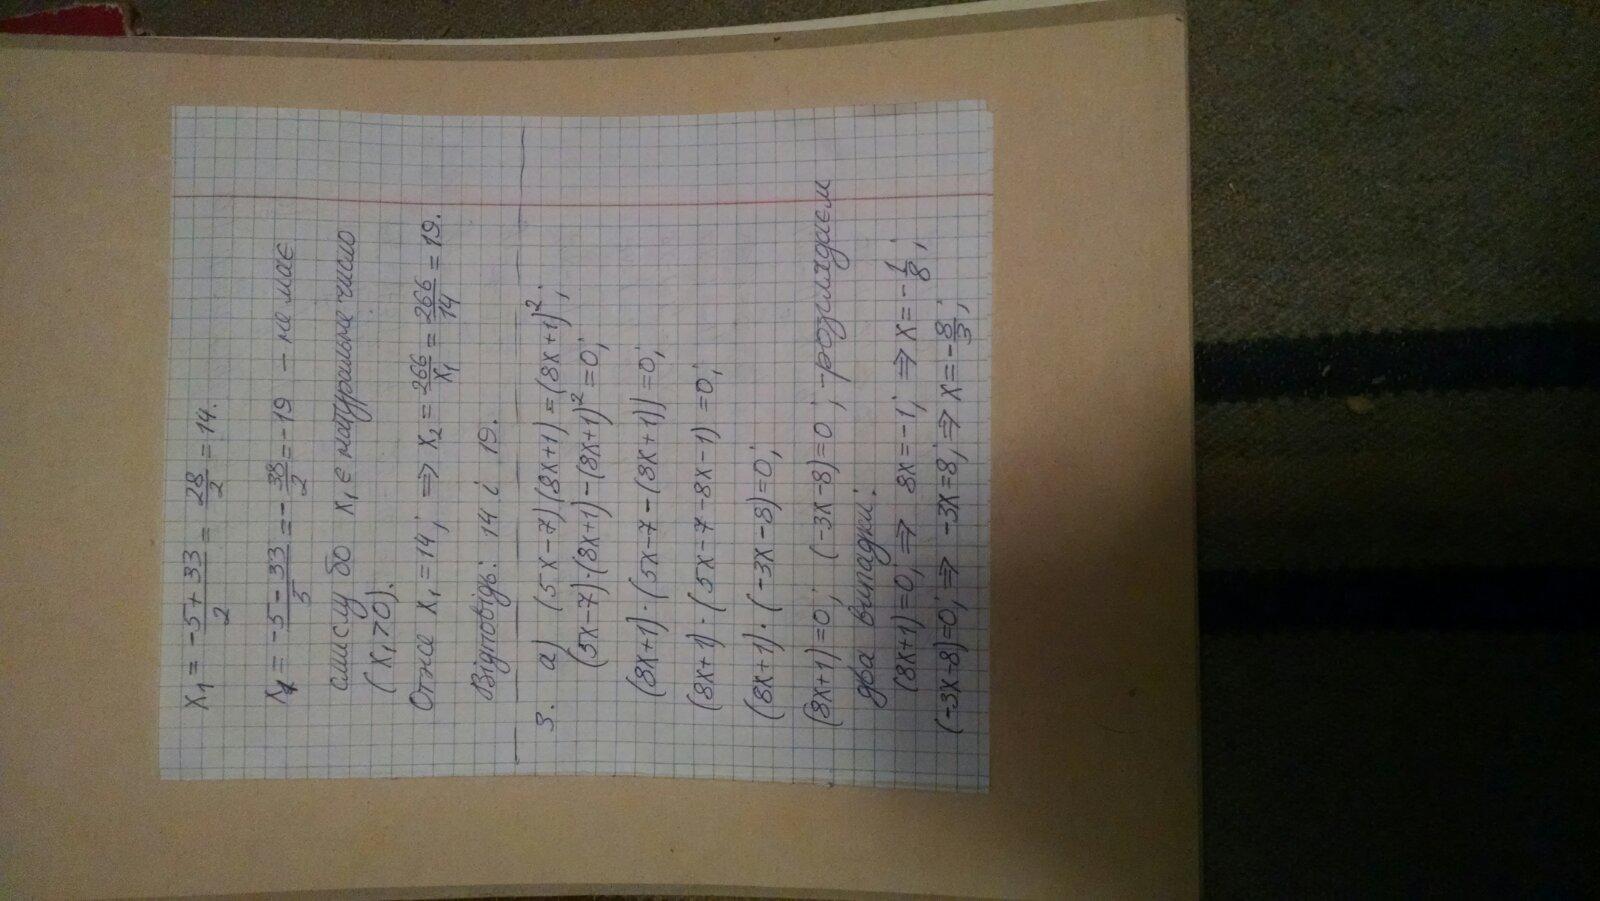 x₁ = (-5+33)/2 = 28/2 = 14.
x₁ = (-5-33)/5 = -38/2 = -19 - не має
смислу бо x₁ є натуральне число
(x₁>0).
Отже x₁=14; ⇒ x₂ = 266/x₁ = 266/14 = 19.
Відповідь: 14 і 19.
3. а) (5x-7)(8x+1)=(8x+1)²;
(5x-7)·(8x+1)-(8x+1)²=0;
(8x+1)·(5x-7-(8x+1))=0;
(8x+1)·(5x-7-8x-1)=0;
(8x+1)·(-3x-8)=0;
(8x+1)=0; (-3x-8)=0; -розглядаєм
два випадки:
(8x+1)=0; ⇒ 8x=-1; ⇒ x=-1/8;
(-3x-8)=0; ⇒ -3x=8; ⇒ x=-8/3;